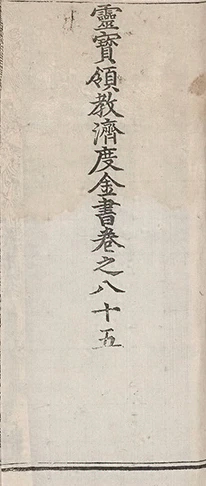 靈寶領教濟度金書卷之八十五